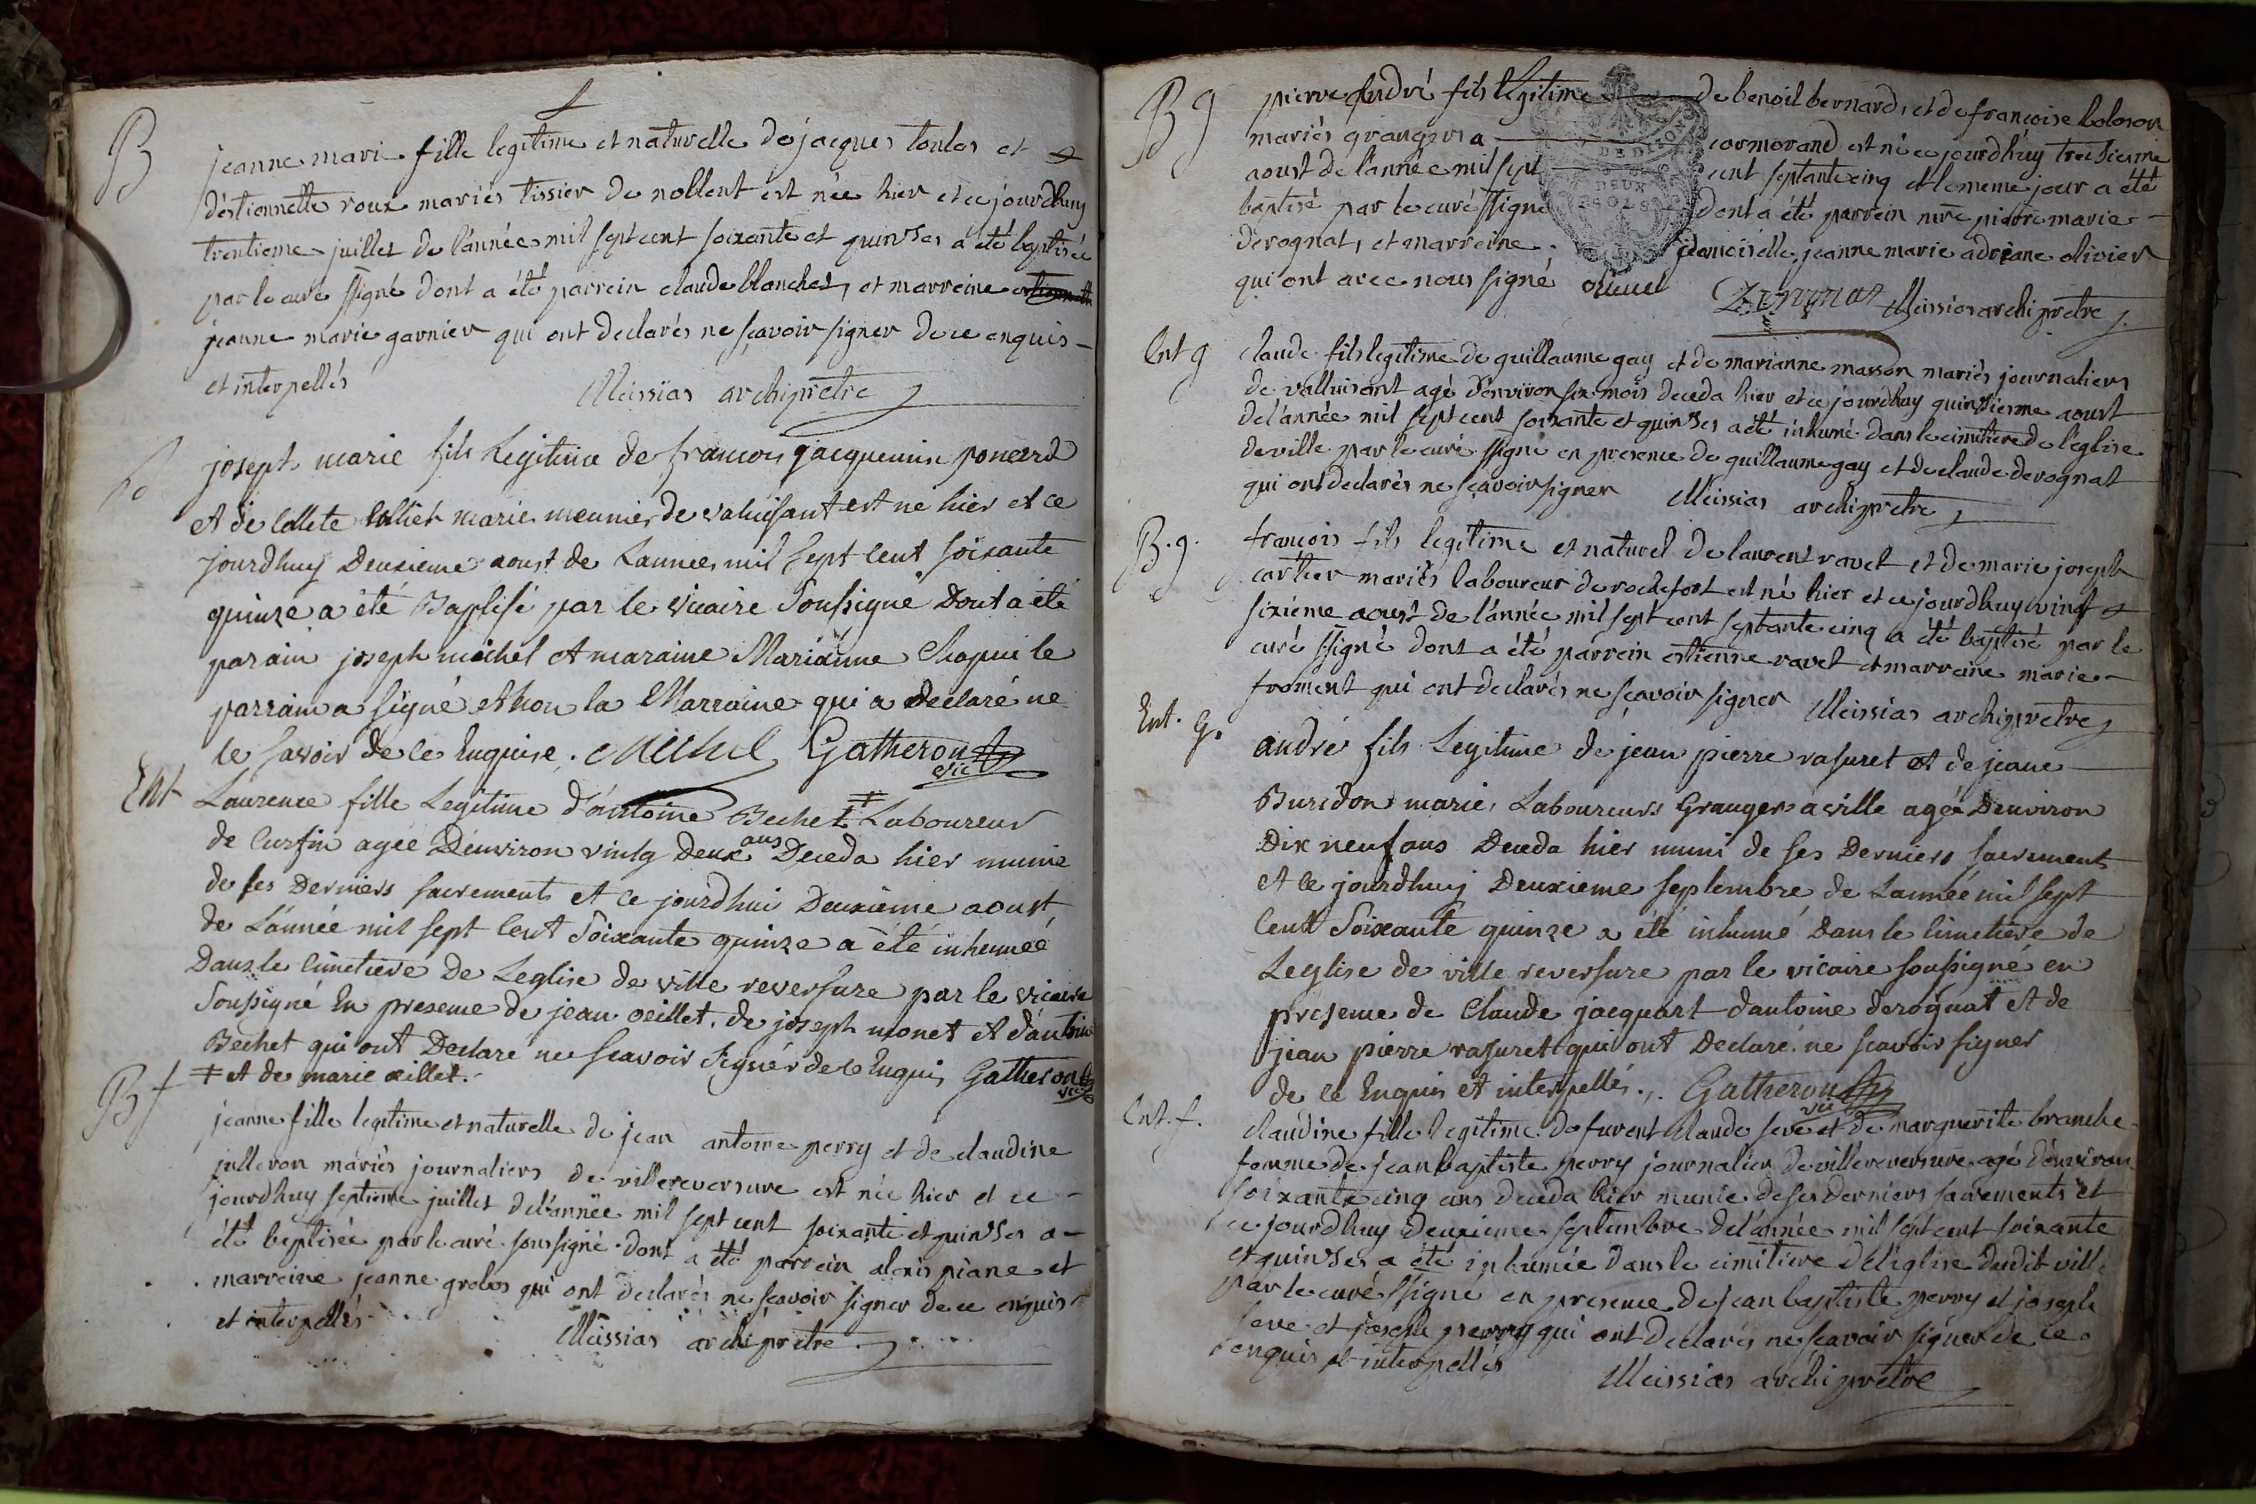 B
jeanne marie fille legitime et naturelle de jacques toulos et
d'estiennette roux mariés tissier de nollent est née hier et ce jourdhuy
trentieme juillet de l'année mil sept cent soixante et quinses a été baptisée
par le curé ssigné dont a été parrein claude blanchet, et marreine
jeanne marie garnier qui ont declarés ne sçavoir signer de ce enquis
et interpellés
Meissias archiprêtre
joseph marie fils Legitime de francois jacquemin poncerd
et de Collete Colliet marie meunier de valuisant est né hier et ce
jourdhuy Deuxieme aoust de Lannee mil Sept Cent soixante
quinze a été Baptisé par le vicaire Soussigné Dont a été
parain joseph michel et maraine Marianne Chapui le
parrain a signé et non la Marraine qui a declaré ne
le savoir de ce Enquise. Michel Gatheron
vic
Ent
Laurence fille Legitime d'antoine Bechet ‡ Laboureur
de Curfin agée D'environ vintg Deux ans Deceda hier munie
de ses Derniers sacrements et ce jourdhui Deuxieme aoust
de L'année mil sept Cent Soixante quinze a été inhumée
Dans le cimetiere de Leglise de ville reversure par le vicaire
Soussigné En presence de jean oeillet, de joseph monet et d'antoine
Bechet qui ont Declaré ne scavoir Signer de ce Enquis Gatheron
vic
‡ et de marie oeillet.
B f
jeanne fille legitime et naturelle de jean antoine perry et de claudine
julleron mariés journaliers de villereversure est née hier et ce
jourdhuy septieme juillet de l'année mil sept cent soixante et quinses a
été baptisée par le curé soussigné dont a été parrein alexis piane et
marreine jeanne grobos qui ont declarés ne scavoir signer de ce enquis
et interpellés
Meissias archiprêtre
B g
pierre andré fils legitime de benoit bernard, et de francoise boloson
mariés grangers a cormorand est né ce jourdhuy treisieme
aoust de l'année mil sept cent septante cinq et le meme jour a été
baptisé par le curé ssigné dont a été parrein mre pierre marie
derognat, et marreine demoiselle jeanne marie adriane olivier
qui ont avec nous signé olivier Derognat Meissias archiprêtre
DE DIJON
DEUX
SOLS
Ent g
claude fils legitime de guillaume gay et de marianne masson mariés journaliers
de valluisant agé d'environ six mois deceda hier et ce jourdhuy quinsieme aoust
de l'année mil sept cent soixante et quinses a été inhumé dans le cimitiere de l'eglise
de ville par le curé ssigné en presence de guillaume gay et de claude derognat
qui ont declarés ne sçavoir signer Meissias archiprêtre
B. g.
francois fils legitime et naturel de laurent ravet et de marie joseph
cartier mariés laboureur de rochefort est né hier et ce jourdhuy vingt
sixieme aoust de l'année mil sept cent septante cinq a été baptisé par le
curé ssigné dont a été parrein estienne ravet et marreine marie
froment qui ont declarés ne scavoir signer Meissias archiprêtre
Ent. g.
andré fils Legitime de jean pierre rasuret et de jeane
Buridon marie, Laboureurs Granger a ville agée Denviron
Dix neuf ans Deceda hier muni de ses Derniers sacrements
et ce jourdhuy Deuxieme septembre de Lannée mil sept
Cent Soixante quinze a été inhumé Dans le Cimetiere de
Leglise de ville reversure par le vicaire soussigné en
presence de Claude jacquart dantoine derognat et de
jean pierre rasuret qui ont Declaré ne scavoir signer
de ce Enquis et interpellés. Gatheron
vic
Ent. f.
claudine fille legitime de fuvent claude seve et de marguerite branche
femme de jean baptiste perry journalier de villereversure agé d'environ
soixante cinq ans deceda hier munie de ses derniers sacrements et
ce jourdhuy deuxieme septembre de l'année mil sept cent soixante
et quinses a été inhumée dans le cimitiere de l'eglise dudit ville
par le curé ssigné en presence de jean baptiste perry et joseph
seve et joseph perry qui ont declarés ne scavoir signer de ce
enquis et interpellés
Meissias archiprêtre